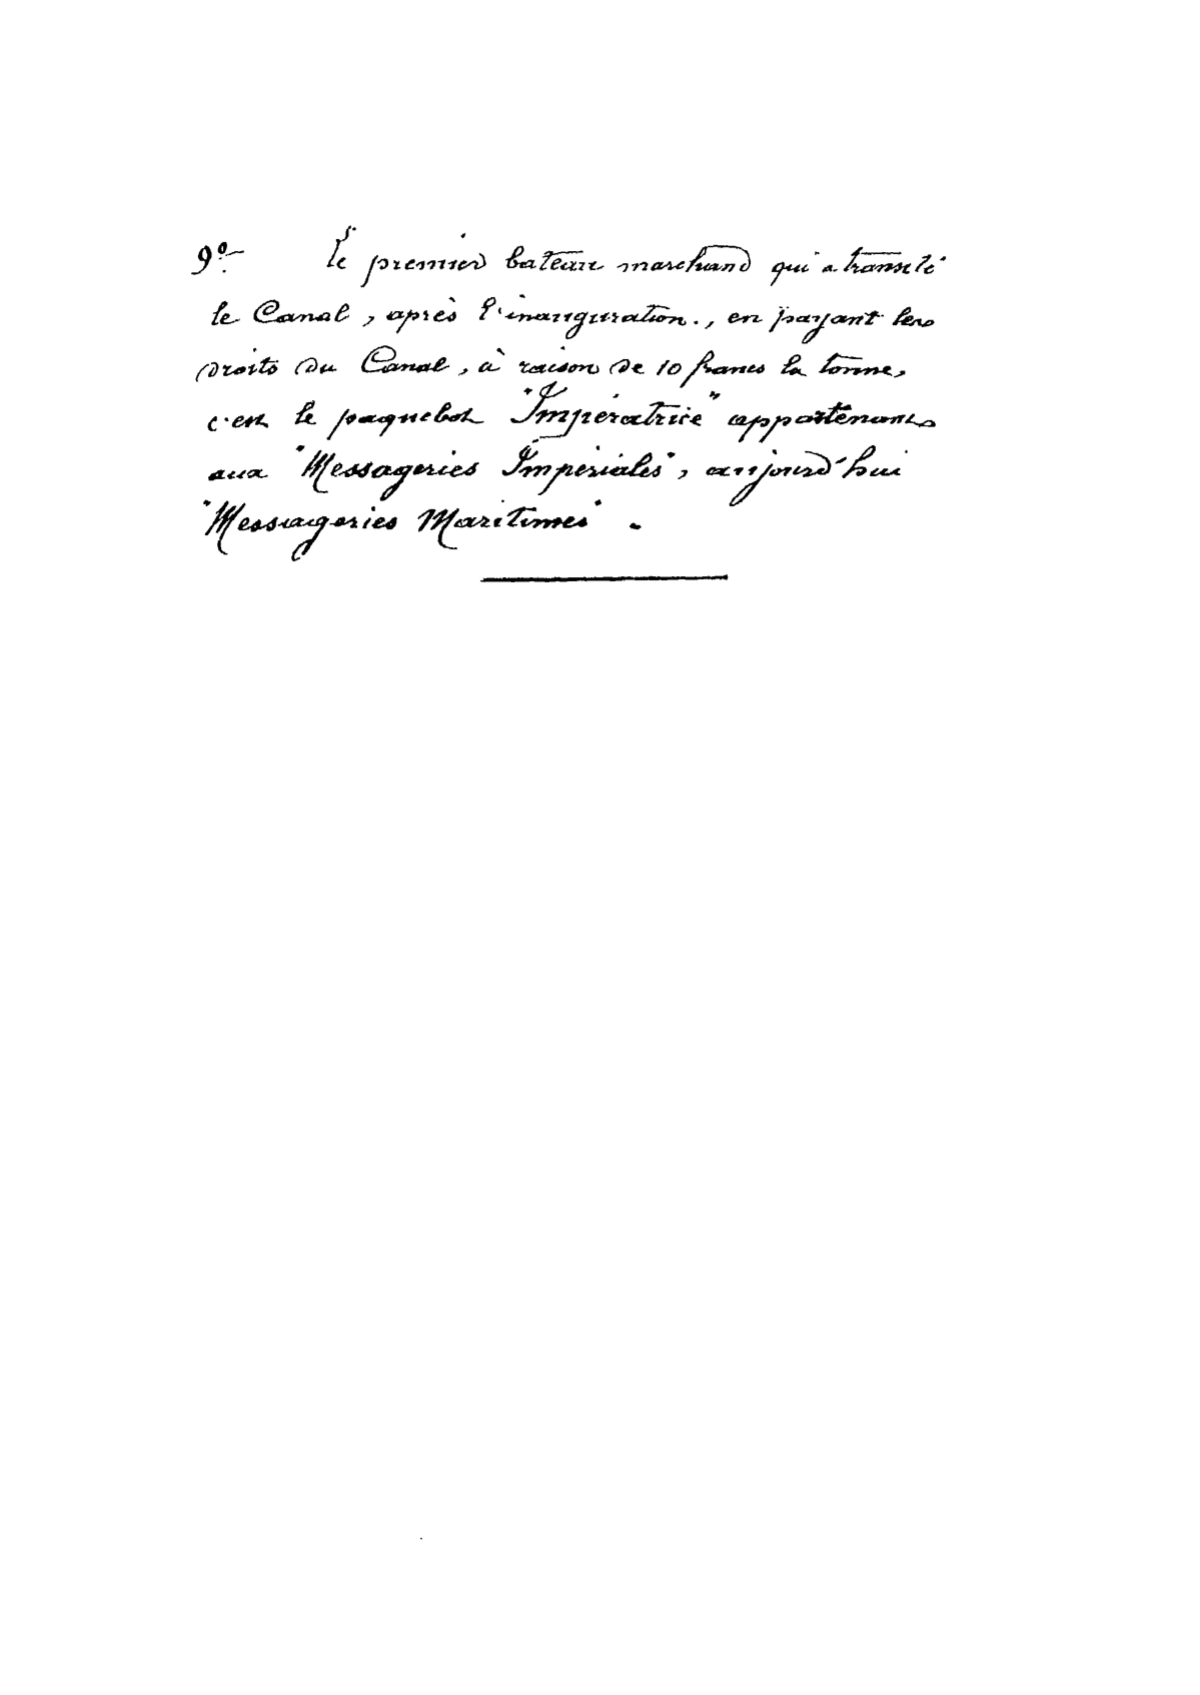 9º— Le premier bateau marchand qui a transité
le Canal, après l'inauguration, en payant les
droits du Canal, à raison de 10 francs la tonne,
c'est le paquebot "Impératrice" appartenant
aux "Messageries Impériales", aujourd'hui
"Messageries Maritimes".